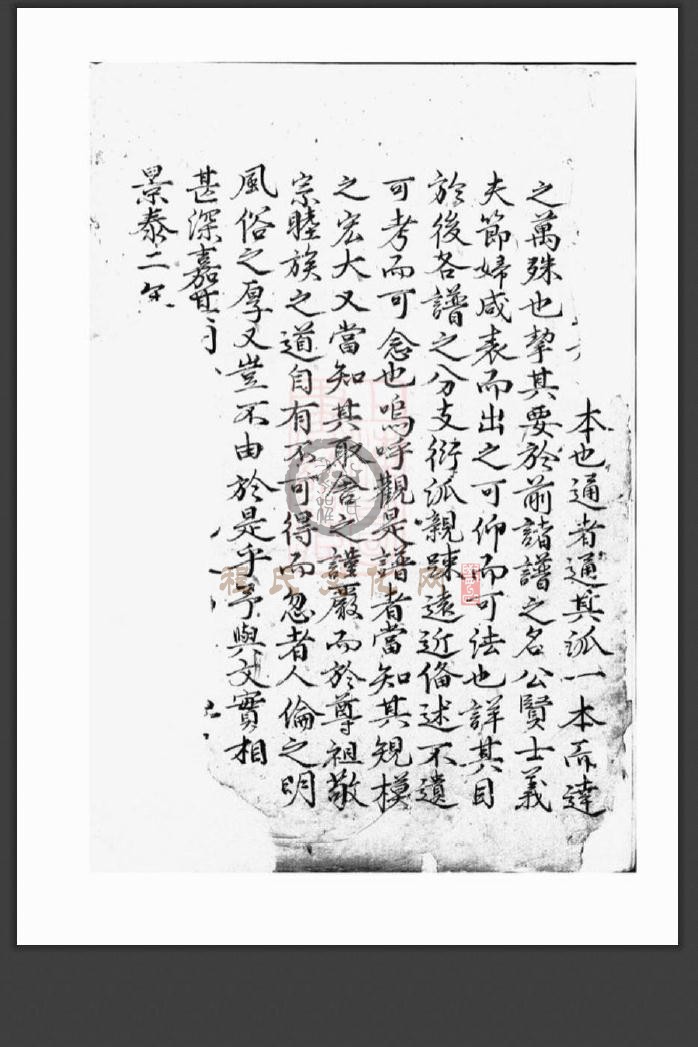 本也通者通其派一本而達
之萬殊也挈其要於前諸譜之名公賢士義
夫節婦咸表而出之可仰而可法也詳其目
於後各譜之分支衍派親踈遠近俻述不遺
可考而可念也嗚呼觀是譜者當知其䂓模
之宏大又當知其取舍之謹嚴而於尊祖敬
宗睦族之道自有不可得而忽者人倫之明
風俗之厚又豈不由於是乎予與文實相
甚深嘉其
景泰二年
程氏文化网